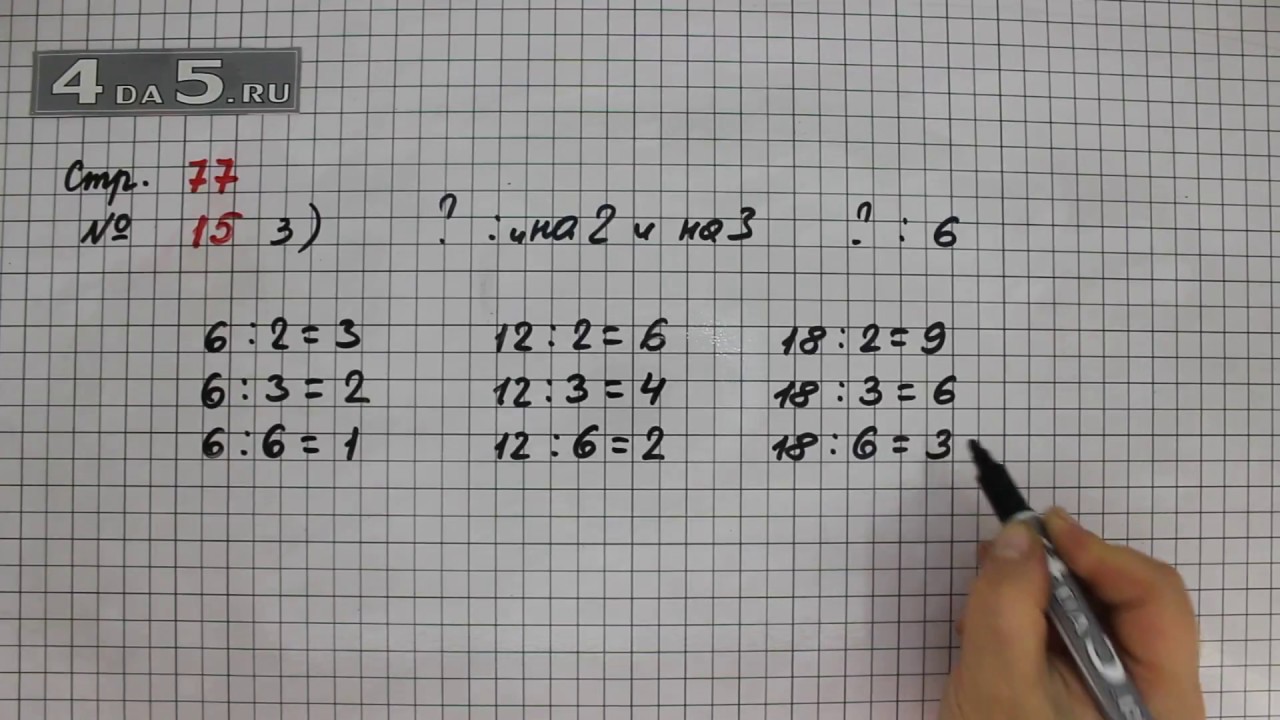 4 DA 5.RU
Стр. 77
№ 15 3) ? : и на 2 и на 3 ? : 6
6 : 2 = 3 12 : 2 = 6 18 : 2 = 9
6 : 3 = 2 12 : 3 = 4 18 : 3 = 6
6 : 6 = 1 12 : 6 = 2 18 : 6 = 3